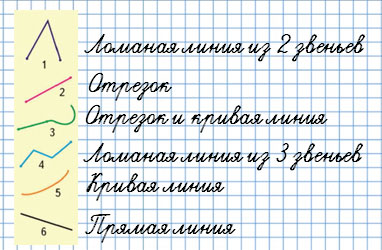 1 Ломаная линия из 2 звеньев
2 Отрезок
3 Отрезок и кривая линия
4 Ломаная линия из 3 звеньев
5 Кривая линия
6 Прямая линия